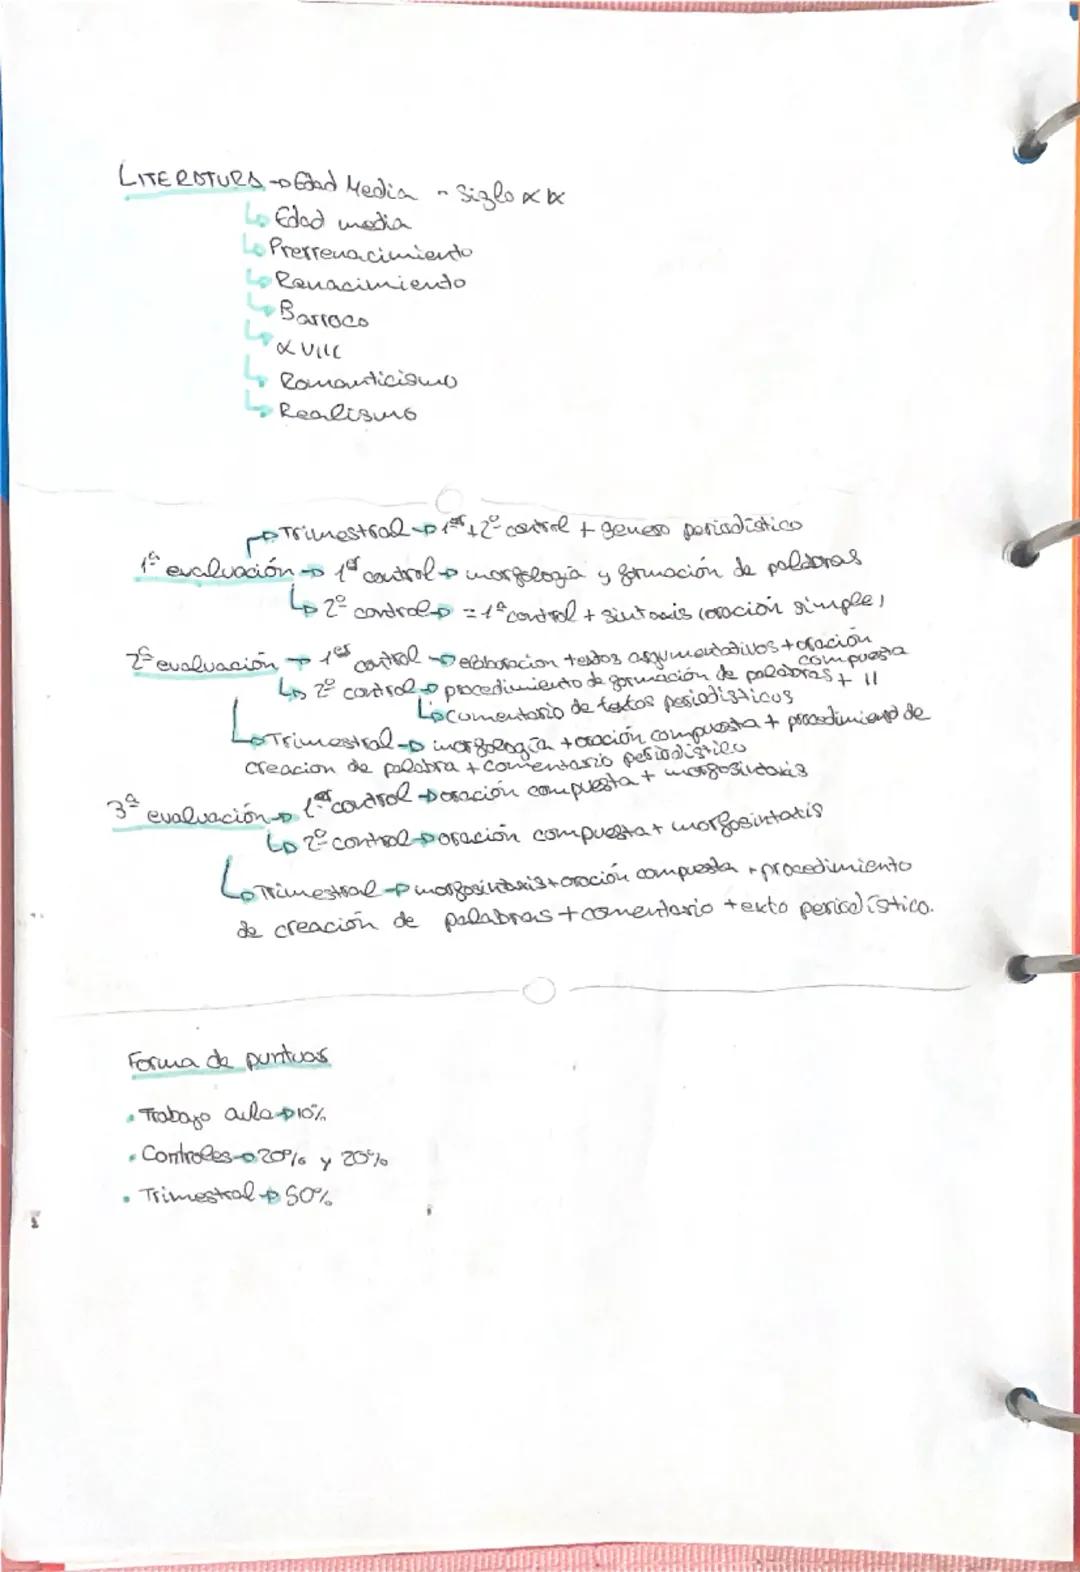 LITERATURA → Edad Media - Siglo XIX
↳ Edad media
↳ Prerrenacimiento
↳ Renacimiento
↳ Barroco
↳ XVIII
↳ Romanticismo
↳ Realismo
→ Trimestral → 1er+2º control + genero periodístico
1ª evaluación → 1er control → morfología y formación de palabras
↳ 2º control → = 1er control + sintaxis (oración simple)
2ª evaluación → 1er control → elaboracion textos argumentativos + oración compuesta
↳ 2º control → procedimiento de formación de palabras + 11
↳ comentario de textos periodísticos
↳ Trimestral → morfología + oración compuesta + procedimiento de
creacion de palabra + comentario periodístico
3ª evaluación → 1er control → oración compuesta + morfosintaxis
↳ 2º control → oración compuesta + morfosintaxis
↳ Trimestral → morfosintaxis + oración compuesta + procedimiento
de creación de palabras + comentario + texto periodístico.
Forma de puntuar
• Trabajo aula → 10%
• Controles → 20% y 20%
• Trimestral → 50%